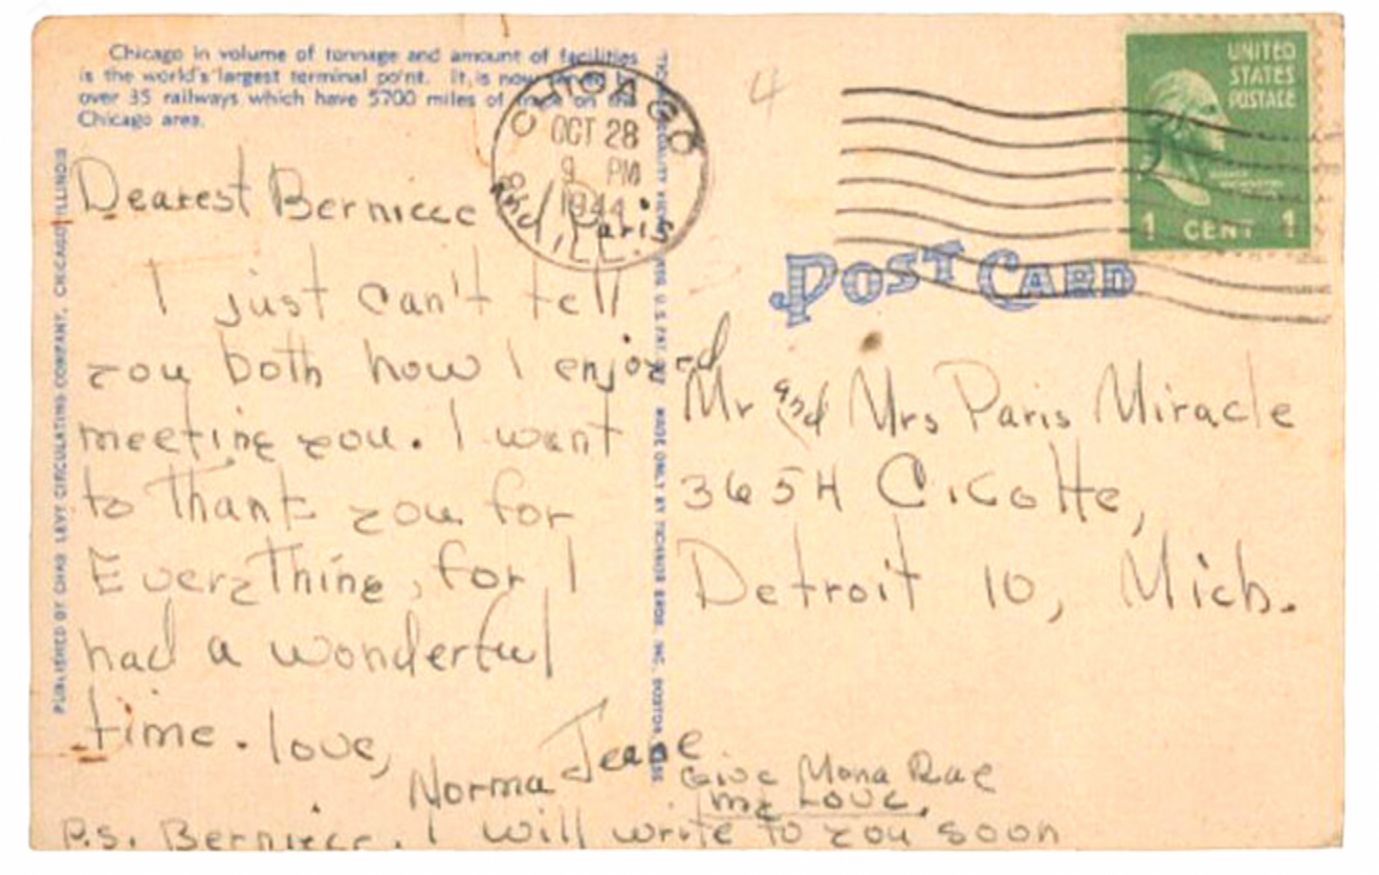 Chicago in volume of tonnage and amount of facilities
is the world's largest terminal point. It is now served by
over 35 railways which have 5700 miles of track on the
Chicago area.
CHICAGO
OCT 28
9 PM
1944
ILL.
UNITED
STATES
POSTAGE
1 CENT 1
POST CARD
4
PUBLISHED BY CHAS LEVY CIRCULATING COMPANY, CHICAGO ILLINOIS
MADE ONLY BY TICHNOR BROS. INC. BOSTON MASS
Dearest Berniece and Paris
I just can't tell
you both how I enjoyed
meeting you. I want
to Thank you for
EveryThing, for I
had a wonderful
time. love,
Norma Jeane
P.S. Berniece. I will write to you soon
Give Mona Rae
my Love.
Mr and Mrs Paris Miracle
3654 Cicotte,
Detroit 10, Mich.